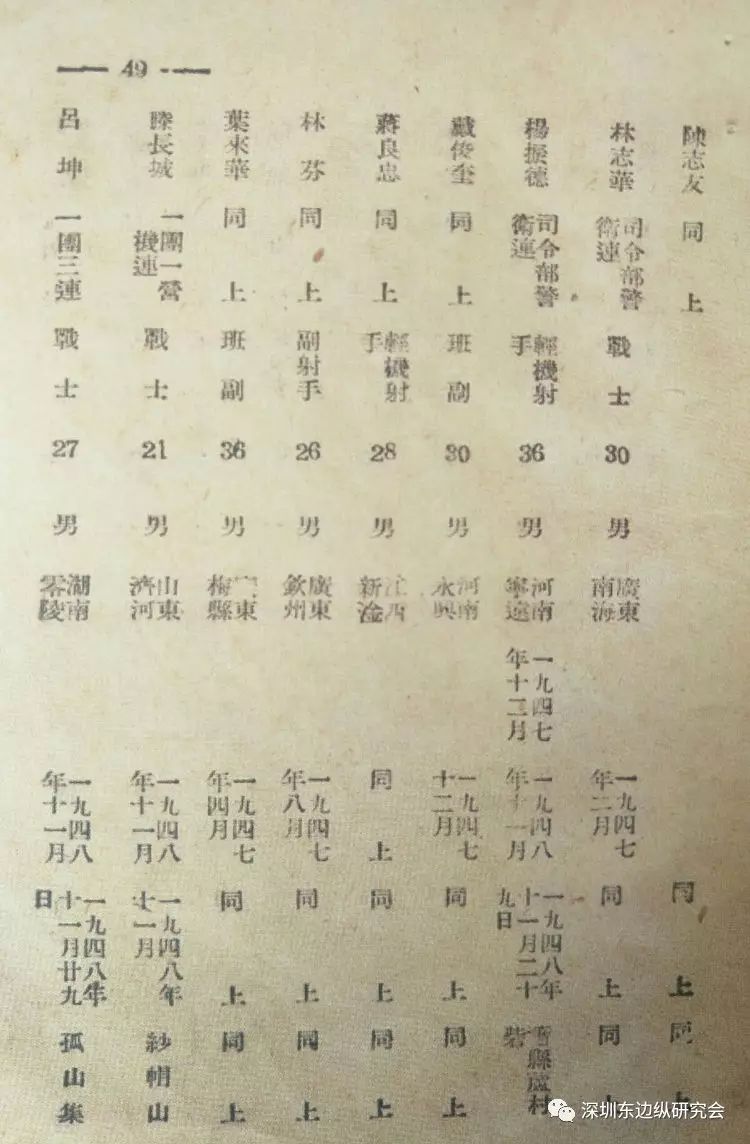 49
陳志友 同上 同上 同上
林志華 司令部警衛連 戰士 30 男 廣東南海 一九四七年二月 同上 同上
楊振德 司令部警衛連 輕機射手 36 男 河南寧遠 一九四七年十二月 一九四八年十一月 一九四八年十一月二十九日 縣蘆村砦
臧俊奎 同上 班副 30 男 河南永興 一九四七十二月 同上 同上
蔣良忠 同上 輕機射手 28 男 江西新淦 同上 同上 同上
林芬 同上 副射手 26 男 廣東欽州 一九四七年八月 同上 同上
葉來華 同上 班副 36 男 東梅縣 一九四七年四月 同上 同上
長城 一團一營機連 戰士 21 男 山東濟河 一九四八年十一月 一九四八年十一月 紗帽山
呂坤 一團三連 戰士 27 男 湖南零陵 一九四八年十一月 一九四八年十一月廿九日 孤山集
深圳东边纵研究会